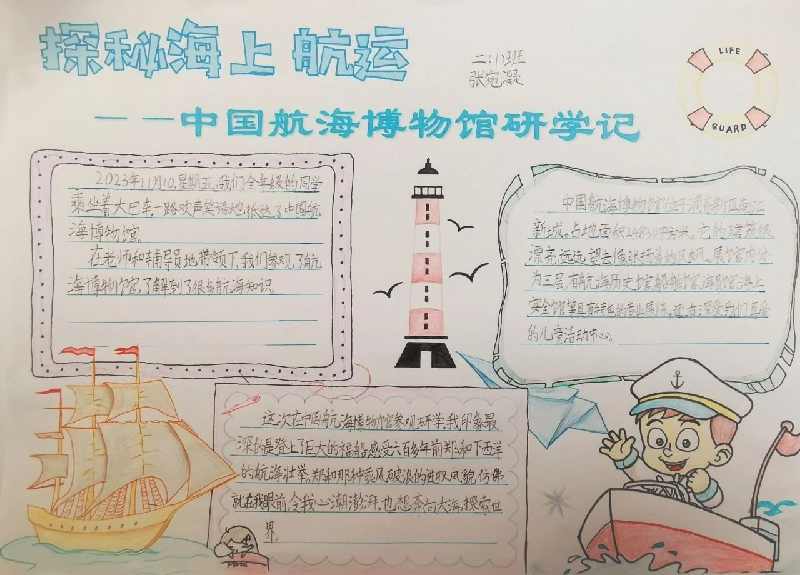 探秘海上航运
二(1)班
张宛凝
LIFE
GUARD
——中国航海博物馆研学记
2023年11月10,星期五,我们全年级的同学
乘坐着大巴车一路欢声笑语地,抵达了中国航
海博物馆。
在老师和辅导员地带领下,我们参观了航
海博物馆,了解到了很多航海知识。
中国航海博物馆位于浦东新区南汇
新城。占地面积24830平方米。它的建筑很
漂亮,远远望去像张扬着的风帆。展馆内分
为三层,有航海历史馆船舶馆海员馆海上
安全馆等具有特色的专业展区。还有深受我们喜爱
的儿童活动中心。
这次在中国航海博物馆参观研学,我印象最
深的是登上了巨大的福船感受六百多年前郑和下西洋
的航海壮举。郑和那种乘风破浪的进取风貌,仿佛
就在我眼前,令我心潮澎湃,也想奔向大海,探索世
界。